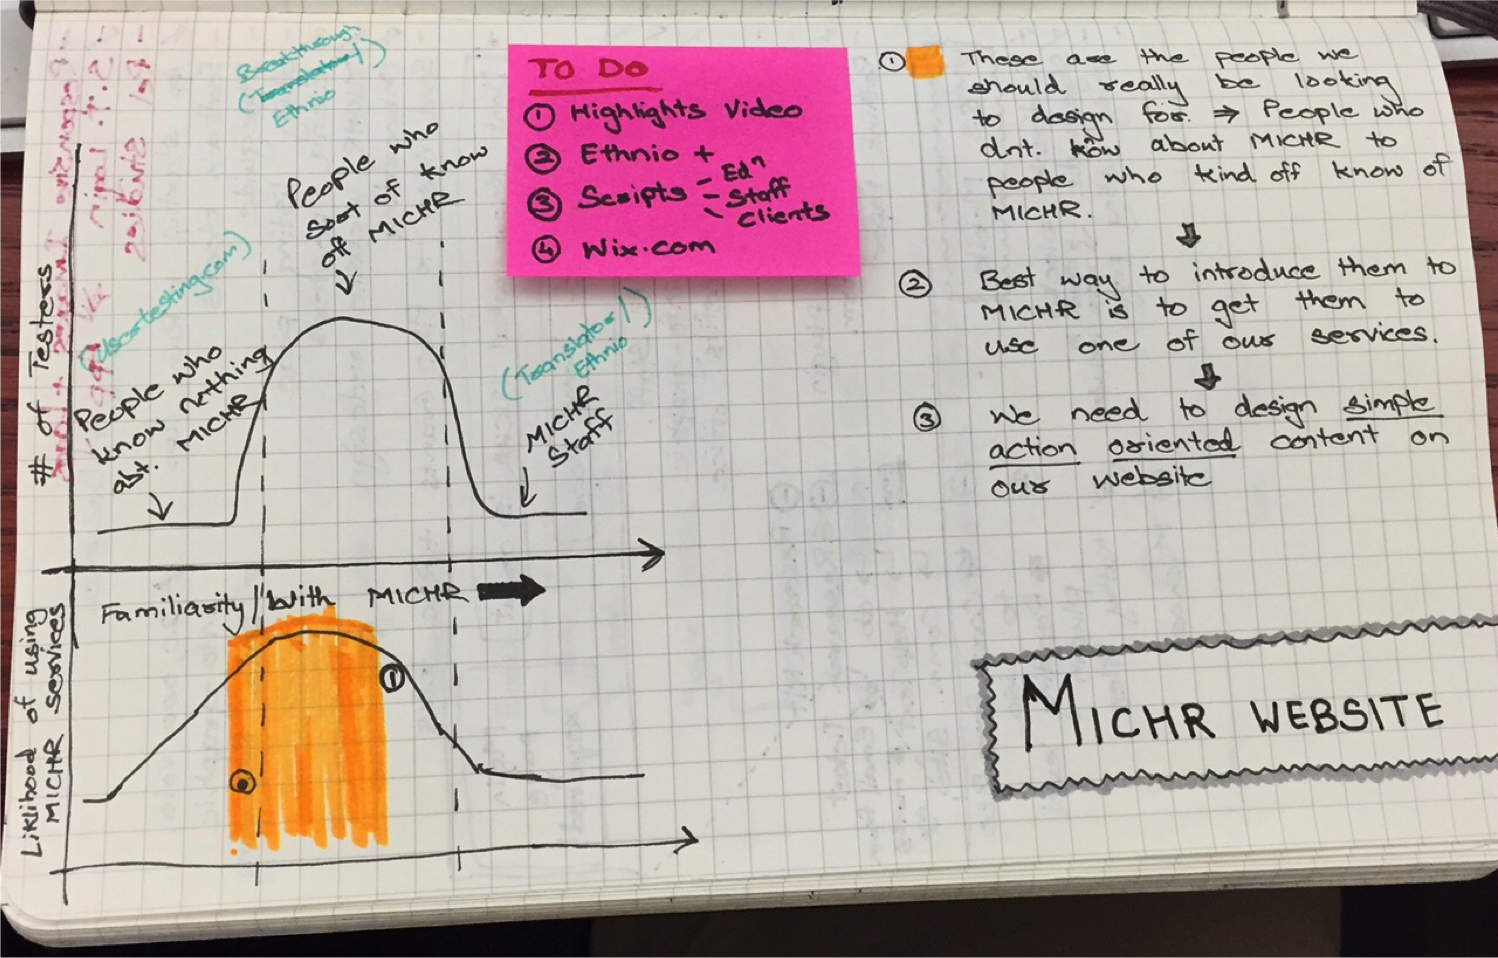 Breakthrough
(Translational)
Ethnio
People who
sort of know
off MICHR
(Usertesting.com)
People who
know nothing
abt. MICHR
(Translational)
Ethnio
MICHR
Staff
# of Testers
Familiarity With MICHR
Liklihood of using
MICHR services
1
TO DO
① Highlights Video
② Ethnio +
③ Scripts - Edⁿ
- Staff
- Clients
④ Wix.com
① These are the people we
should really be looking
to design for. ⇒ People who
dnt. know about MICHR to
people who kind off know of
MICHR.
② Best way to introduce them to
MICHR is to get them to
use one of our services.
③ We need to design simple
action oriented content on
our website
MICHR WEBSITE